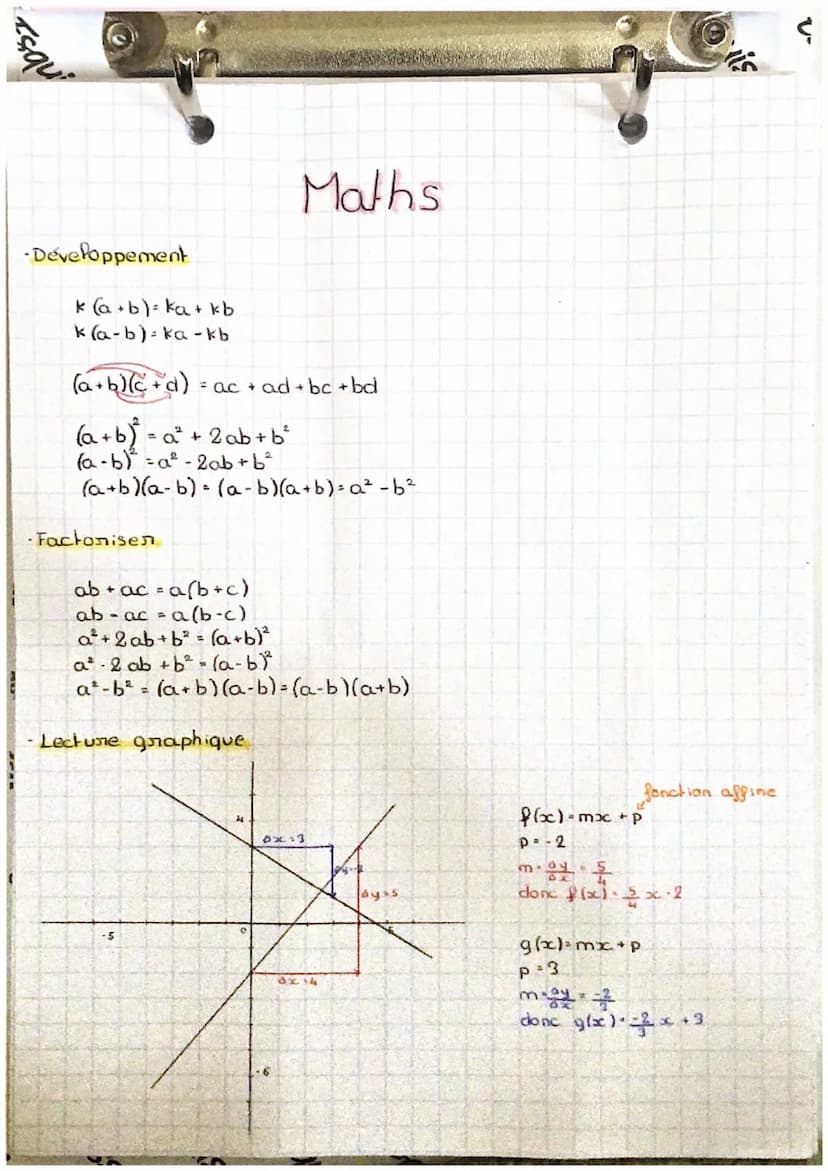 Maths
- Développement
k(a+b)=ka+kb
k(a-b)=ka-kb
(a+b)(c+d) = ac + ad + bc + bd
(a+b)² = a² + 2ab + b²
(a-b)² = a² - 2ab + b²
(a+b)(a-b) = (a-b)(a+b) = a² - b²
- Factoriser
ab + ac = a(b+c)
ab - ac = a(b-c)
a² + 2ab + b² = (a+b)²
a² - 2ab + b² = (a-b)²
a² - b² = (a+b)(a-b) = (a-b)(a+b)
- Lecture graphique
fonction affine
f(x) = mx + p
p = -2
m = Δy/Δx = 5/4
donc f(x) = 5/4 x - 2
g(x) = mx + p
p = 3
m = Δy/Δx = -2/3
donc g(x) = -2/3 x + 3
4
Δx = 3
Δy=-2
Δy=5
-5
0
5
Δx=4
-6